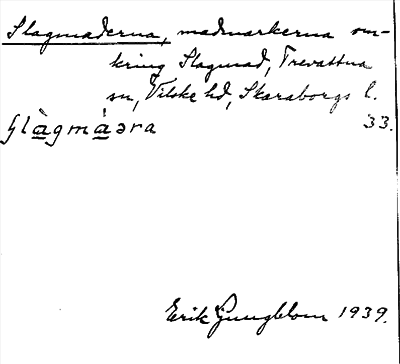 Slagmaderna, madmarkerna om-
kring Slagmad, Trevattna
sn, Vilske hd, Skaraborgs l.
slàgmàəra 33.
Erik Ljungblom 1939.